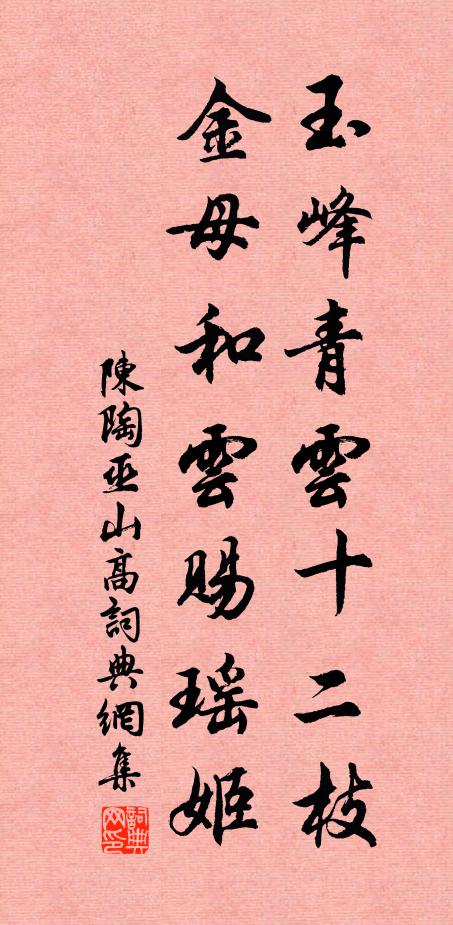 玉峰青雲十二枝
金母和雲賜瑶姬
陳陶巫山高詞典網集
詞典网印